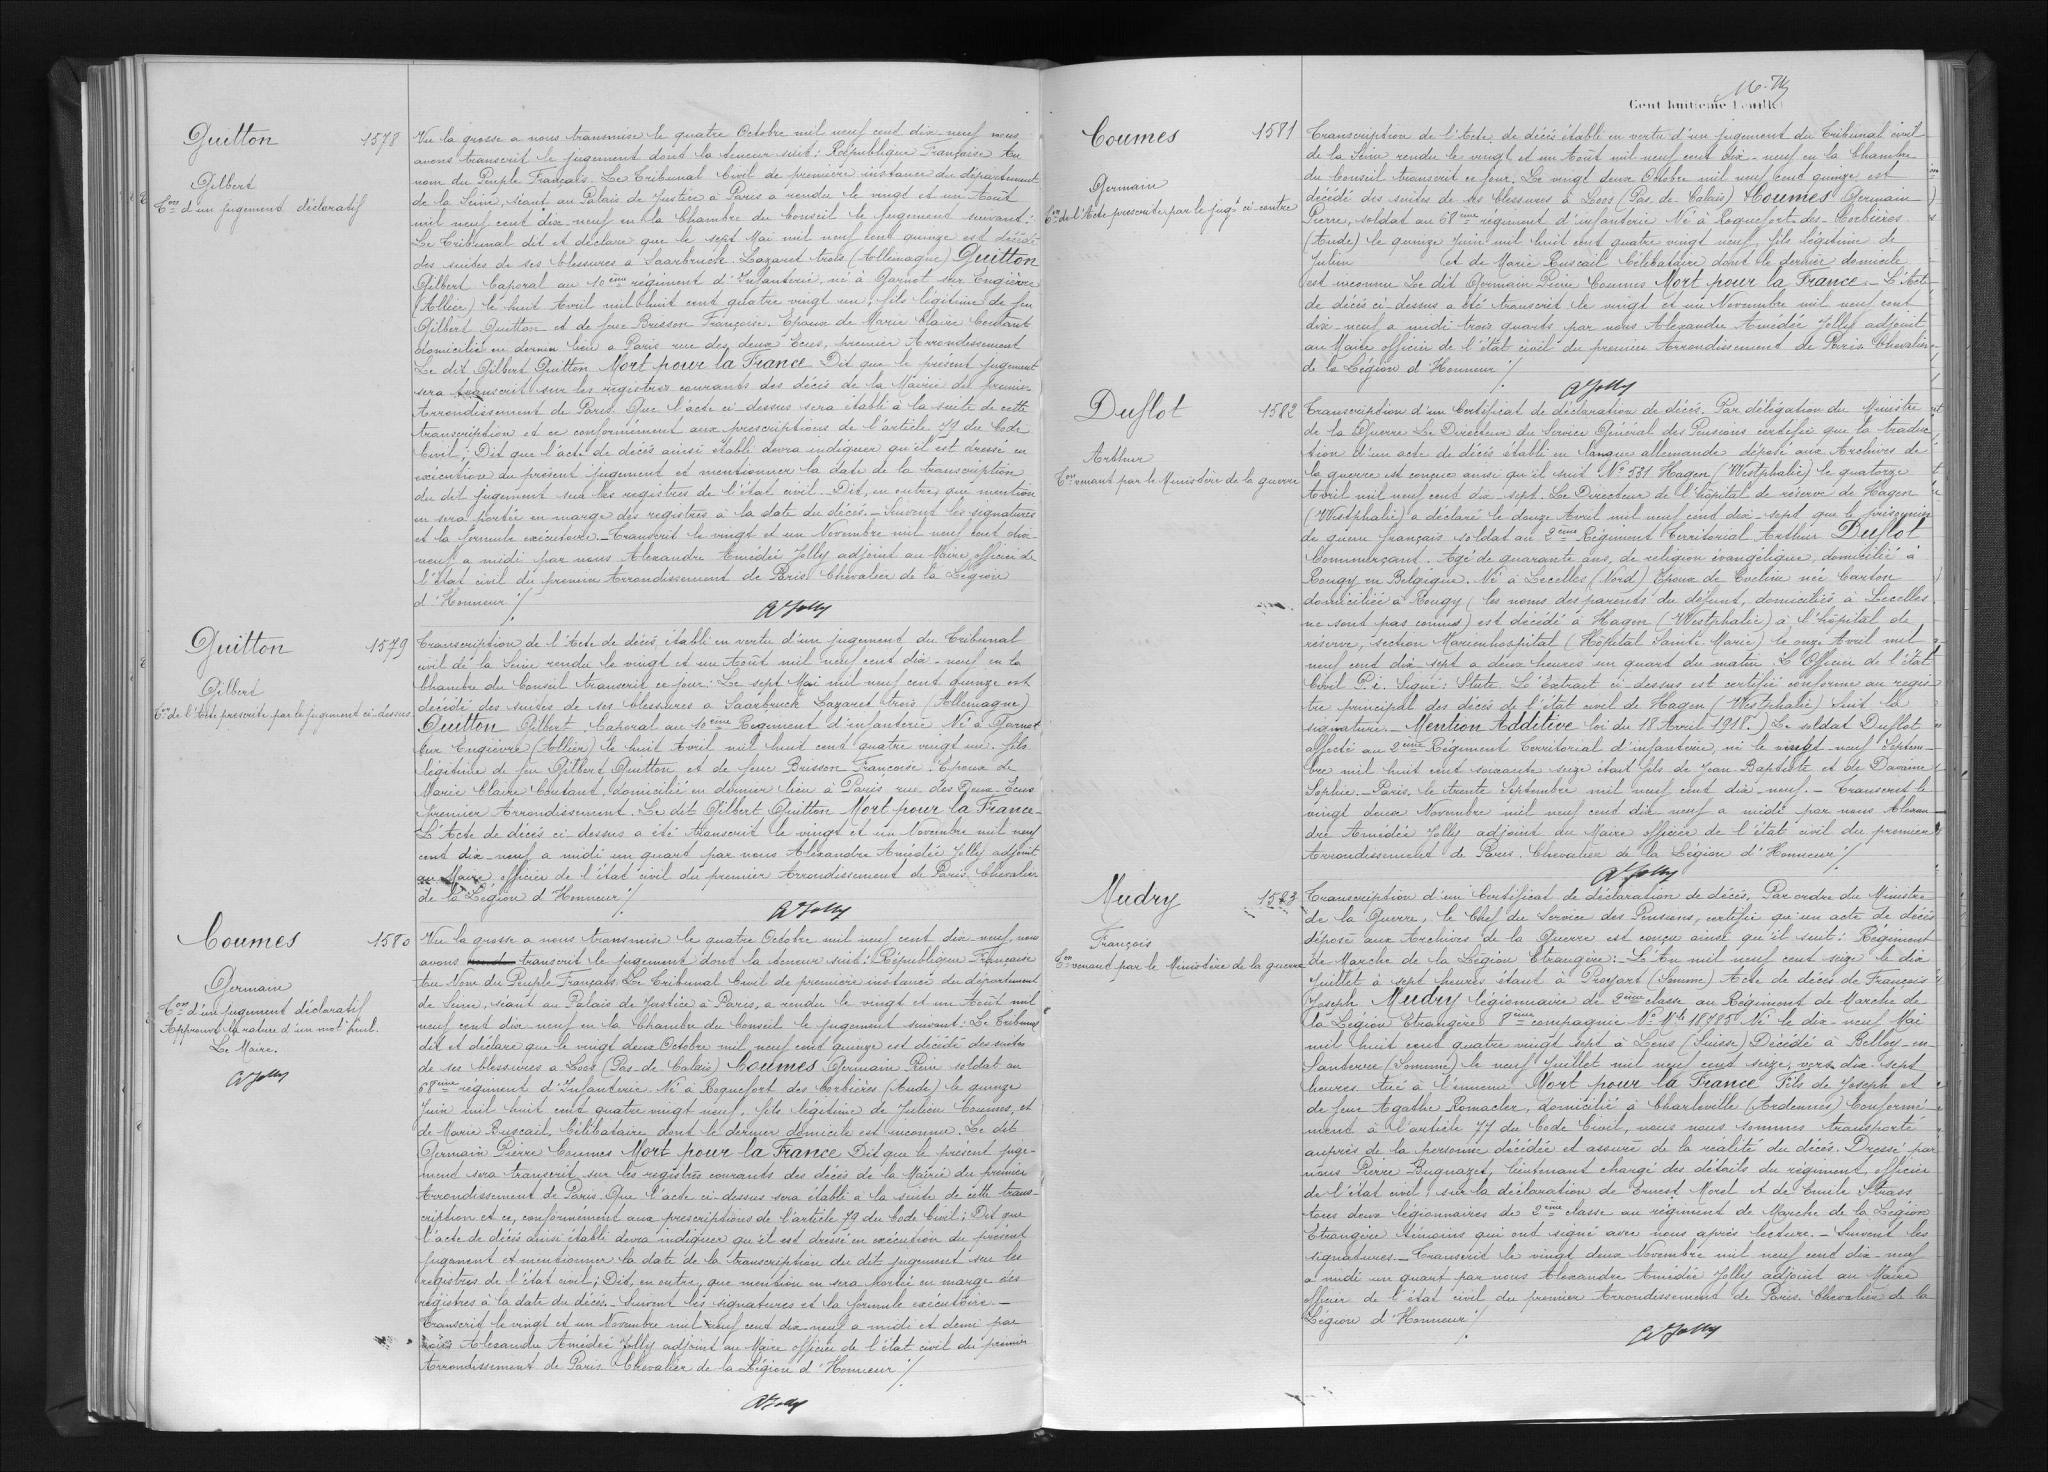 Quitton
1578
Gilbert
Con d'un jugement déclaratif
Vu la grosse a nous transmise le quatre Octobre mil neuf cent dix-neuf nous
avons transcrit le jugement dont la teneur suit: République Française Au
nom du Peuple Français. Le Tribunal Civil de première instance du département
de la Seine, séant au Palais de Justice à Paris a rendu le vingt et un Août
mil neuf cent dix-neuf en la Chambre du Conseil le jugement suivant:
Le Tribunal dit et déclare que le sept Mai mil neuf cent quinze est décédé
des suites de ses blessures a Saarbruck Lazaret trois (Allemagne) Quitton
Gilbert Caporal au 10ème régiment d'Infanterie, né à Garnat sur Engièvre
(Allier) le huit Avril mil huit cent quatre vingt un, fils légitime de feu
Gilbert Quitton et de feue Brisson Françoise. Epoux de Marie Claire Coutant
domicilié en dernier lieu a Paris rue des deux Ecus, premier Arrondissement
Le dit Gilbert Quitton Mort pour la France Dit que le présent jugement
sera transcrit sur les registres courants des décès de la Mairie du premier
Arrondissement de Paris. Que l'acte ci-dessus sera établi à la suite de cette
transcription et ce conformément aux prescriptions de l'article 79 du Code
Civil; Dit que l'acte de décès ainsi établi devra indiquer qu'il est dressé en
exécution du présent jugement et mentionner la date de la transcription
du dit jugement sur les registres de l'état civil. Dit, en outre, que mention
en sera portée en marge des registres à la date du décès. _ Suivent les signatures
et la formule exécutoire. _ Transcrit le vingt et un Novembre mil neuf cent dix-
neuf a midi par nous Alexandre Amédée Jolly adjoint au Maire, officier de
l'état civil du premier Arrondissement de Paris Chevalier de la Légion
d'Honneur ./.
AJolly
Quitton
1579
Gilbert
Con de l'Acte prescrite par le jugement ci-dessus
Transcription de l'Acte de décès établi en vertu d'un jugement du Tribunal
civil de la Seine rendu le vingt et un Août mil neuf cent dix-neuf en la
Chambre du Conseil transcrit ce jour: Le sept Mai mil neuf cent quinze est
décédé des suites de ses blessures a Saarbruck Lazaret trois (Allemagne)
Quitton Gilbert. Caporal au 10ème Régiment d'infanterie Né à Garnat
sur Engièvre (Allier) le huit Avril mil huit cent quatre vingt un. fils
légitime de feu Gilbert Quitton et de feue Brisson Françoise. Epoux de
Marie Claire Coutant, domicilié en dernier lieu à Paris rue des Deux-Ecus
premier Arrondissement. Le dit Gilbert Quitton Mort pour la France _
L'Acte de décès ci-dessus a été transcrit le vingt et un Novembre mil neuf
cent dix-neuf a midi un quart par nous Alexandre Amédée Jolly adjoint
au Maire, officier de l'état civil du premier Arrondissement de Paris Chevalier
de la Légion d'Honneur ./.
AJolly
Coumes
1580
Germain
Con d'un jugement déclaratif
Approuvé la rature d'un mot nul.
Le Maire.
AJolly
Vu la grosse a nous transmise le quatre Octobre mil neuf cent dix-neuf, nous
avons transcrit le jugement dont la teneur suit: République Française
Au Nom du Peuple Français. Le Tribunal Civil de première instance du département
de Seine, séant au Palais de Justice à Paris, a rendu le vingt et un Août mil
neuf cent dix-neuf en la Chambre du Conseil le jugement suivant: Le Tribunal
dit et déclare que le vingt deux Octobre mil neuf cent quinze est décédé des suites
de ses blessures a Loos (Pas-de-Calais) Coumes Germain Pierre soldat au
68ème régiment d'Infanterie. Né à Roquefort des Corbières (Aude) le quinze
Juin mil huit cent quatre vingt neuf, fils légitime de Julien Coumes, et
de Marie Buscail. Célibataire dont le dernier domicile est inconnu. Le dit
Germain Pierre Coumes Mort pour la France Dit que le présent juge-
ment sera transcrit sur les registres courants des décès de la Mairie du premier
Arrondissement de Paris. Que l'acte ci-dessus sera établi à la suite de cette trans-
cription et ce, conformément aux prescriptions de l'article 79 du Code Civil; Dit que
l'acte de décès ainsi établi devra indiquer qu'il est dressé en exécution du présent
jugement et mentionner la date de la transcription du dit jugement sur les
registres de l'état civil; Dit, en outre, que mention en sera portée en marge des
registres à la date du décès. _ Suivent les signatures et la formule exécutoire. _
Transcrit le vingt et un Novembre mil neuf cent dix-neuf a midi et demi par
nous Alexandre Amédée Jolly adjoint au Maire officier de l'état civil du premier
Arrondissement de Paris. Chevalier de la Légion d'Honneur ./.
AJolly
Cent huitième feuillet
Coumes
1581
Germain
Con de l'Acte prescrite par le jugt ci-contre
Transcription de l'Acte de décès établi en vertu d'un jugement du Tribunal civil
de la Seine rendu le vingt et un Août mil neuf cent dix-neuf en la Chambre
du Conseil transcrit ce jour. Le vingt deux Octobre mil neuf cent quinze est
décédé des suites de ses blessures à Loos (Pas-de-Calais) Coumes Germain
Pierre, soldat au 68ème régiment d'infanterie Né à Roquefort-des-Corbières
(Aude) le quinze Juin mil huit cent quatre vingt neuf, fils légitime de
Julien et de Marie Buscail Célibataire dont le dernier domicile
est inconnu Le dit Germain Pierre Coumes Mort pour la France. _ L'Acte
de décès ci-dessus a été transcrit le vingt et un Novembre mil neuf cent
dix-neuf a midi trois quarts par nous Alexandre Amédée Jolly adjoint
au Maire officier de l'état civil du premier Arrondissement de Paris Chevalier
de la Légion d'Honneur ./.
AJolly
Duflot
1582
Arthur
Con venant par le Ministère de la guerre
Transcription d'un Certificat de déclaration de décès. Par délégation du Ministre
de la Guerre Le Directeur du Service Général des Pensions certifie que la traduc
tion d'un acte de décès établi en langue allemande déposé aux Archives de
la guerre est conçue ainsi qu'il suit No 531 Hagen (Westphalie) le quatorze
Avril mil neuf cent dix-sept. Le Directeur de l'hôpital de réserve de Hagen
(Westphalie) a déclaré le douze Avril mil neuf cent dix-sept que le prisonnier
de guerre français soldat au 2ème Régiment Territorial Arthur Duflot
Commerçant. Agé de quarante ans, de religion évangélique, domicilié à
Rougy en Belgique. Né à Lecelles (Nord) Epoux de Eveline née Carton
domiciliée à Rougy (les noms des parents du défunt, domiciliés à Lecelles
ne sont pas connus) est décédé à Hagen (Westphalie) à l'hôpital de
réserve, section Marienhospital (Hôpital Sainte-Marie) le onze Avril mil
neuf cent dix-sept a deux heures un quart du matin. L'Officier de l'état
Civil P.i. Signé: Stute. L'Extrait ci-dessus est certifié conforme au regis
tre principal des décès de l'état civil de Hagen (Westphalie) Suit la
signature _ Mention Additive loi du 18 Avril 1918.) Le soldat Duflot
affecté au 2ème Régiment Territorial d'infanterie, né le vingt-neuf Septem-
bre mil huit cent soixante seize était fils de Jean-Baptiste et de Davaine
Sophie. _ Paris, le trente Septembre mil neuf cent dix-neuf. _ Transcrit le
vingt deux Novembre mil neuf cent dix-neuf a midi par nous Alexan
dre Amédée Jolly adjoint du Maire officier de l'état civil du premier
Arrondissement de Paris. Chevalier de la Légion d'Honneur ./.
AJolly
Mudry
1583
François
Con venant par le Ministère de la guerre
Transcription d'un Certificat de déclaration de décès. Par ordre du Ministre
de la Guerre, le Chef du Service des Pensions, certifie qu'un acte de décès
déposé aux Archives de la Guerre est conçu ainsi qu'il suit: Régiment
de Marche de la Légion Etrangère: _ L'An mil neuf cent seize le dix
Juillet à sept heures étant à Proyart (Somme) Acte de décès de François
Joseph Mudry légionnaire de 2ème classe au Régiment de Marche de
la Légion Etrangère 8ème compagnie No Mle 18785 Né le dix-neuf Mai
mil huit cent quatre vingt sept à Lens (Suisse) Décédé à Belloy-en-
Santerre (Somme) le neuf Juillet mil neuf cent seize, vers dix-sept
heures tué à l'ennemi Mort pour la France Fils de Joseph et
de feue Agathe Romacler, domicilié à Charleville (Ardennes) Conformé-
ment à l'article 77 du Code Civil, nous nous sommes transporté
auprès de la personne décédée et assuré de la réalité du décès. Dressé par
nous Pierre Bugnazet, lieutenant chargé des détails du régiment, officier
de l'état civil, sur la déclaration de Ernest Morel et de Emile Strass
tous deux légionnaires de 2ème classe au régiment de Marche de la Légion
Etrangère témoins qui ont signé avec nous après lecture. _ Suivent les
signatures. _ Transcrit le vingt deux Novembre mil neuf cent dix-neuf
a midi un quart par nous Alexandre Amédée Jolly adjoint au Maire
officier de l'état civil du premier Arrondissement de Paris. Chevalier de la
Légion d'Honneur ./.
AJolly